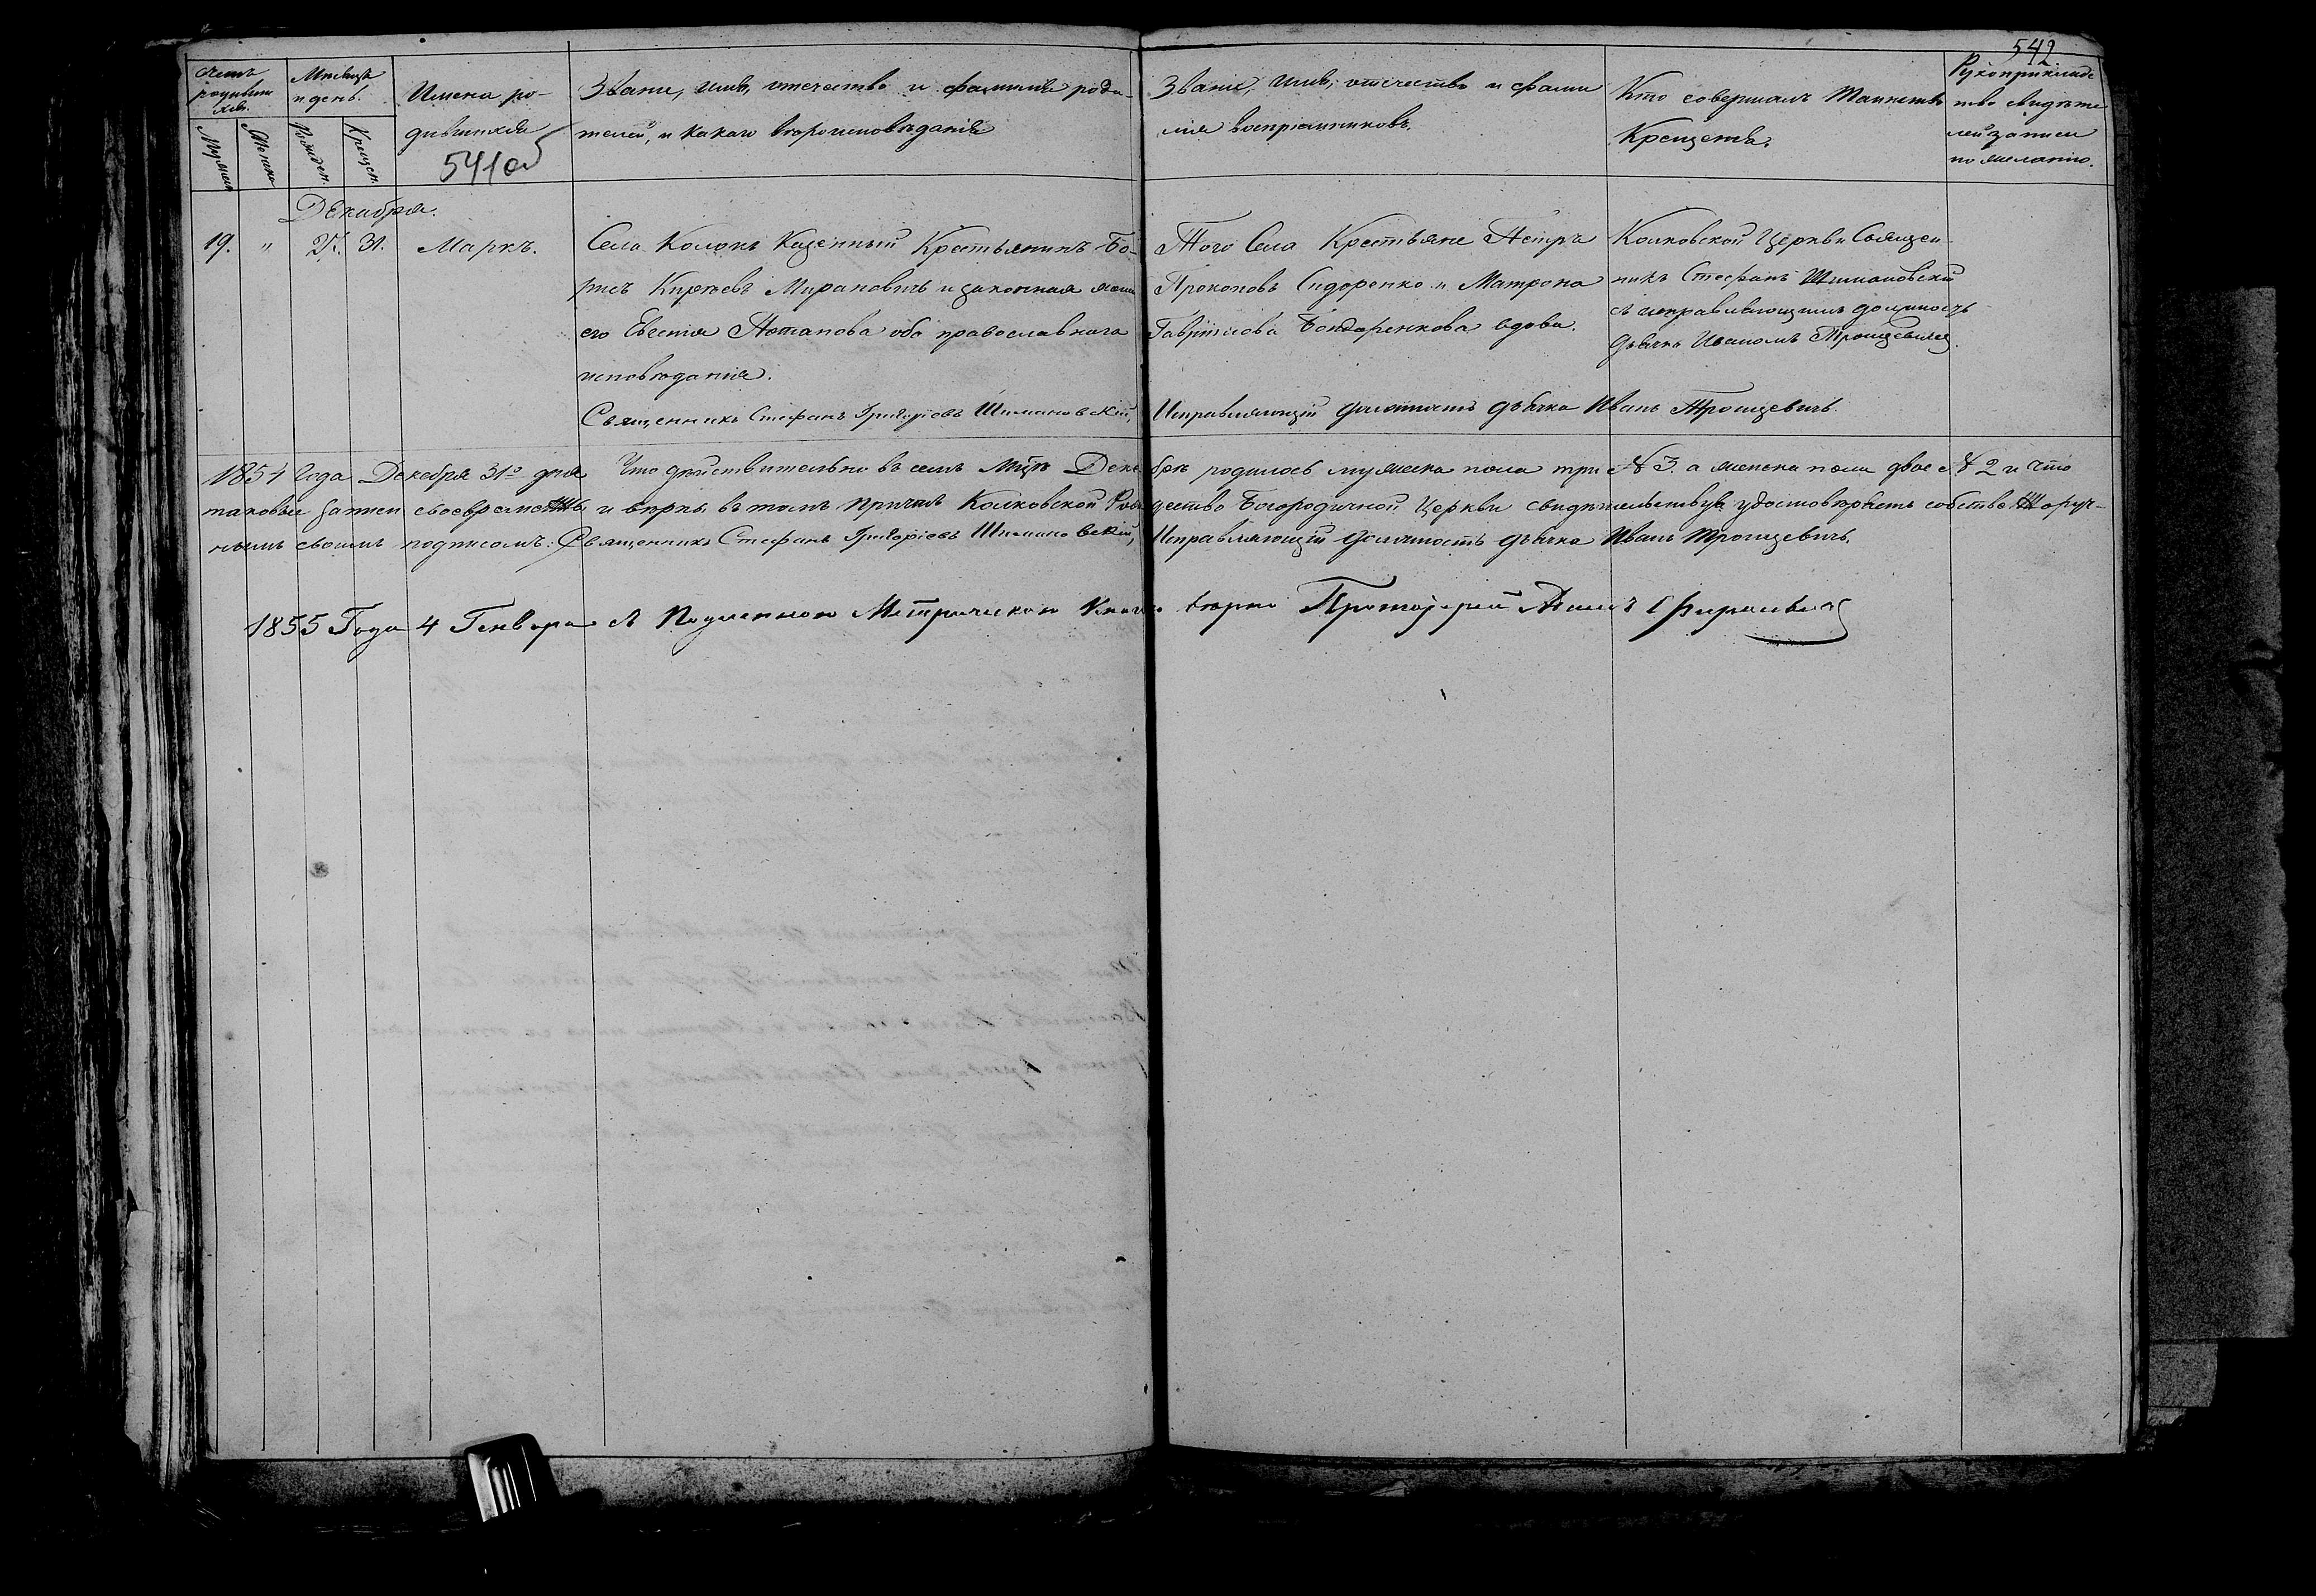 542
Счетъ родившихся.
Мѣсяцъ и день.
Имена ро-
дившихся
541об
Званіе, имя, отечество и фамилія роди-
телей, и какаго вѣроисповѣданія
Званіе, имя, отечество и фами
лія воспріемниковъ.
Кто совершалъ таинство
Крещенія.
Рукоприкладс
тво свидѣте
лей записи
по желанію.
Мужеска
Женска
Рожден.
Крещен.
Декабря.
19. " 27. 31. Маркъ.
Села Колокъ Казенный Крестьянинъ Бо-
рисъ Кирѣевъ Мирановичь и законная жена
его Евгенія Потапова оба православнаго
исповѣданія.
Священникъ Стефанъ Григоріевъ Шимановскій,
Того Села Крестьяне Петръ
Прокоповъ Сидоренко и Матрона
Гавріилова Бондаренкова вдова.
Колковской Церкви Священ-
никъ Стефанъ Шимановскій
съ исправляющимъ должность
дьячка Иваномъ Трощевичемъ.
Исправляющій должность дьячка Иванъ Трощевичъ.
1854 Года Декабря 31го дня Что дѣйствительно въ семъ Мцѣ Декабрѣ родилось мужеска пола три № 3. а женска пола двое № 2 и что
таковые записи своевременны и вѣрны, въ томъ причтъ Колковской Рождество Богородичной Церкви свидѣтельствуя удостовѣряетъ собственноруч-
нымъ своимъ подписомъ: Священникъ Стефанъ Григоріевъ Шимановскій, Исправляющій должность дьячка Иванъ Трощевичъ.
1855 Года 4 Генваря съ Подленною Метрическою Книгою вѣрно Протоіерей